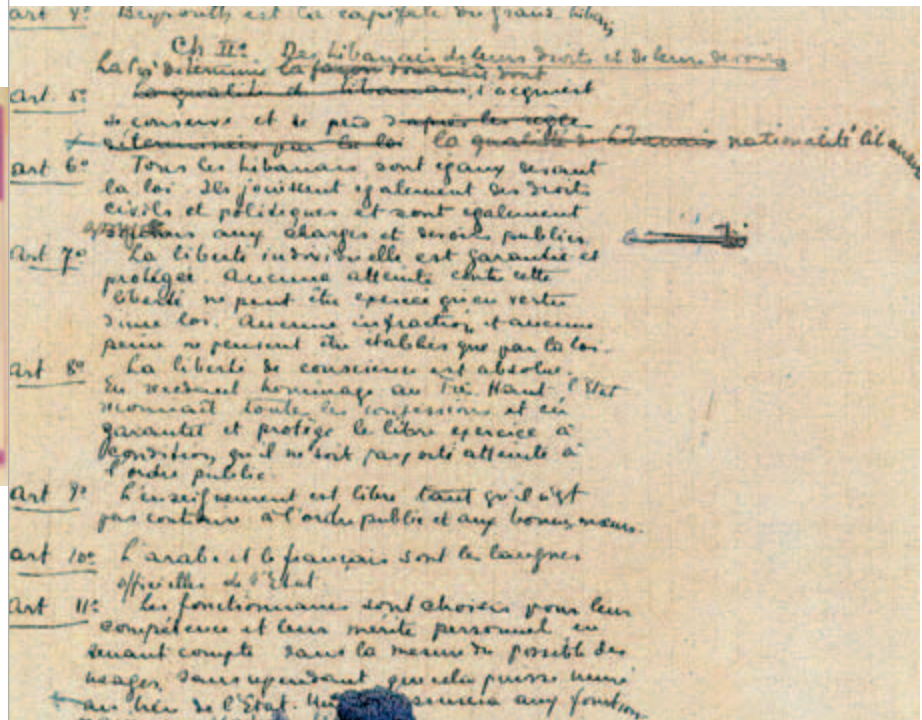 art 4º Beyrouth est la capitale du grand Liban
Ch IIº Des Libanais de leurs droits et de leurs devoirs
La loi détermine la façon dont
art 5º la qualité de libanais, s'acquiert
se conserve et se perd d'après les règles
déterminées par la loi la qualité de Libanais nationalité libanaise
art 6º Tous les Libanais sont egaux devant
la loi. Ils jouissent egalement des droits
civils et politiques et sont egalement
aux charges et devoirs publics
art 7º La liberté individuelle est garantie et
protégée. Aucune atteinte contre cette
liberté ne peut être exercée qu'en vertu
d'une loi. Aucune infraction et aucune
peine ne peuvent être établies que par la loi.
art 8º La liberté de conscience est absolue.
En rendant hommage au Très Haut l'Etat
reconnait toutes les confessions et en
garantit et protège le libre exercice à
condition qu'il ne soit pas porté atteinte à
l'ordre public.
art 9º L'enseignement est libre tant qu'il n'est
pas contraire à l'ordre public et aux bonnes mœurs.
art 10º L'arabe et le français sont les langues
officielles de l'Etat
art 11º Les fonctionnaires sont choisis pour leur
compétence et leur mérite personnel en
tenant compte dans la mesure du possible des
usages sans cependant que cela puisse nuire
au bien de l'Etat. aux fonctions